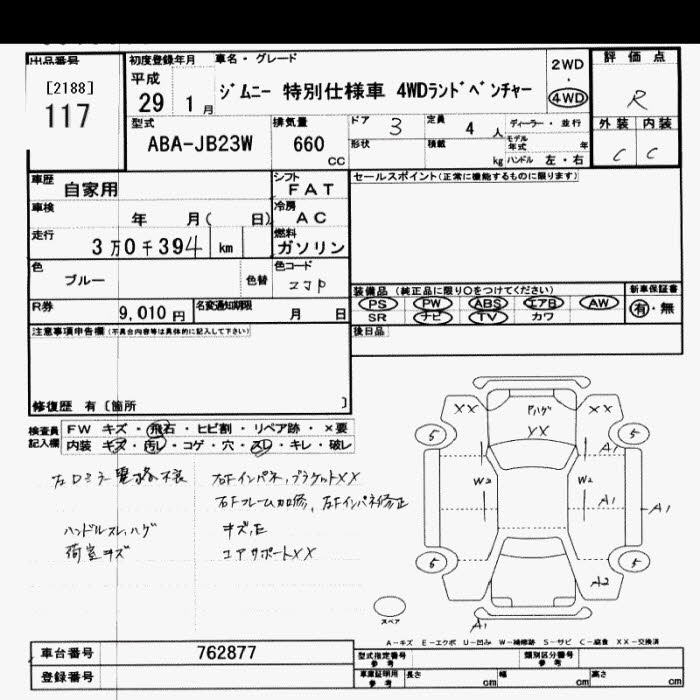 出品番号
[2188]
117
初度登録年月
平成
29 1月
車名・グレード
ジムニー 特別仕様車 4WDランドベンチャー
2WD
・
4WD
評価点
R
外装 内装
C C
型式
ABA-JB23W
排気量
660
CC
ドア 3
定員 4 人
ディーラー・並行
モデル年式 年
形状
積載 kg
ハンドル 左・右
車歴 自家用
シフト FAT
車検 年 月( 日)
冷房 AC
走行 3万0千394 km
燃料 ガソリン
色 ブルー
色替
色コード ZJP
R券 9,010円
名変通知期限 月 日
セールスポイント(正常に機能するものに限ります)
装備品 (純正品に限り○をつけてください)
新車保証書
PS PW ABS エアB AW
有・無
SR ナビ TV カワ
後日品
注意事項申告欄(不具合内容等は具体的に記入して下さい)
修復歴 有〔箇所 〕
検査員記入欄
FW キズ・飛石・ヒビ割・リペア跡・×要
内装 キズ・汚レ・コゲ・穴・スレ・キレ・破レ
左ドミラー電格不良
右Fインパネ,ブラケットXX
右Fフレーム加修, 左Fインパネ修正
ハンドルスレ,ハゲ
キズ,E
荷室キズ
コアサポートXX
XX Pハゲ XX
XX
5 5
A1
W2 W2
A1 A1
5 5
A2
スペア
A1
A-キズ E-エクボ U-凹み W-補修跡 S-サビ C-腐食 XX-交換済
車台番号 762877
登録番号
型式指定番号 参考
類別区分番号 参考
車庫証明用 参考
長さ cm
幅 cm
高さ cm